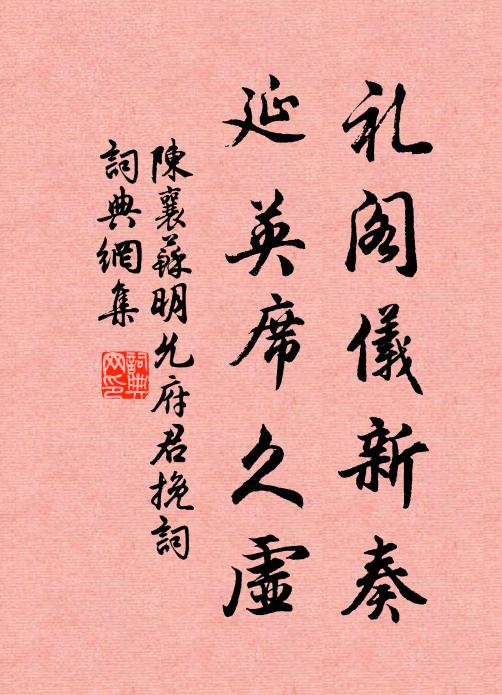 礼阁儀新奏
延英席久虛
陳襄蘇明允府君挽詞
詞典網集
詞典网印